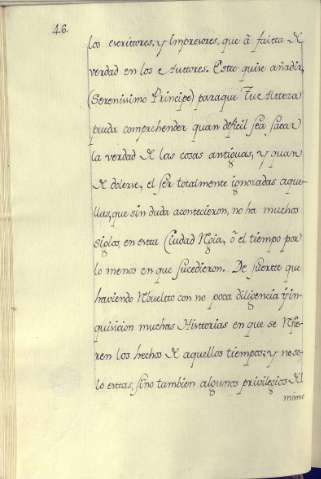 46.
los escrittores, y Impresores, que à faltta de
verdad en los Auttores. Estto quise añadir,
(Serenisimo Principe) paraque Vue Alteza
pueda comprehender quan dificil sea sacar
la verdad de las cosas antiguas, y quan
de dolerse, el ser totalmente ignoradas aque-
llas, que sin duda acontecieron, no ha muchos
siglos, en estta Ciudad Regia, ô el tiempo por
lo menos en que sucedieron. De suertte que
haviendo Rebuelto con no poca diligencia y in-
quisicion muchas Histtorias en que se Refie-
ren los hechos de aquellos tiempos; y no so-
lo esttas, sino tambien algunos privilegios del
mone